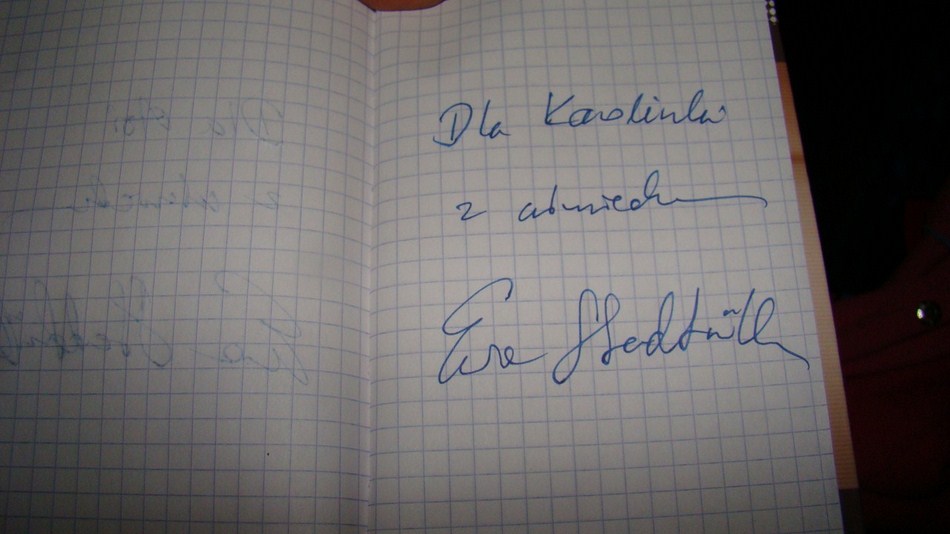 Dla Karolinki
z uśmiechem
Ewa Stadtmüller